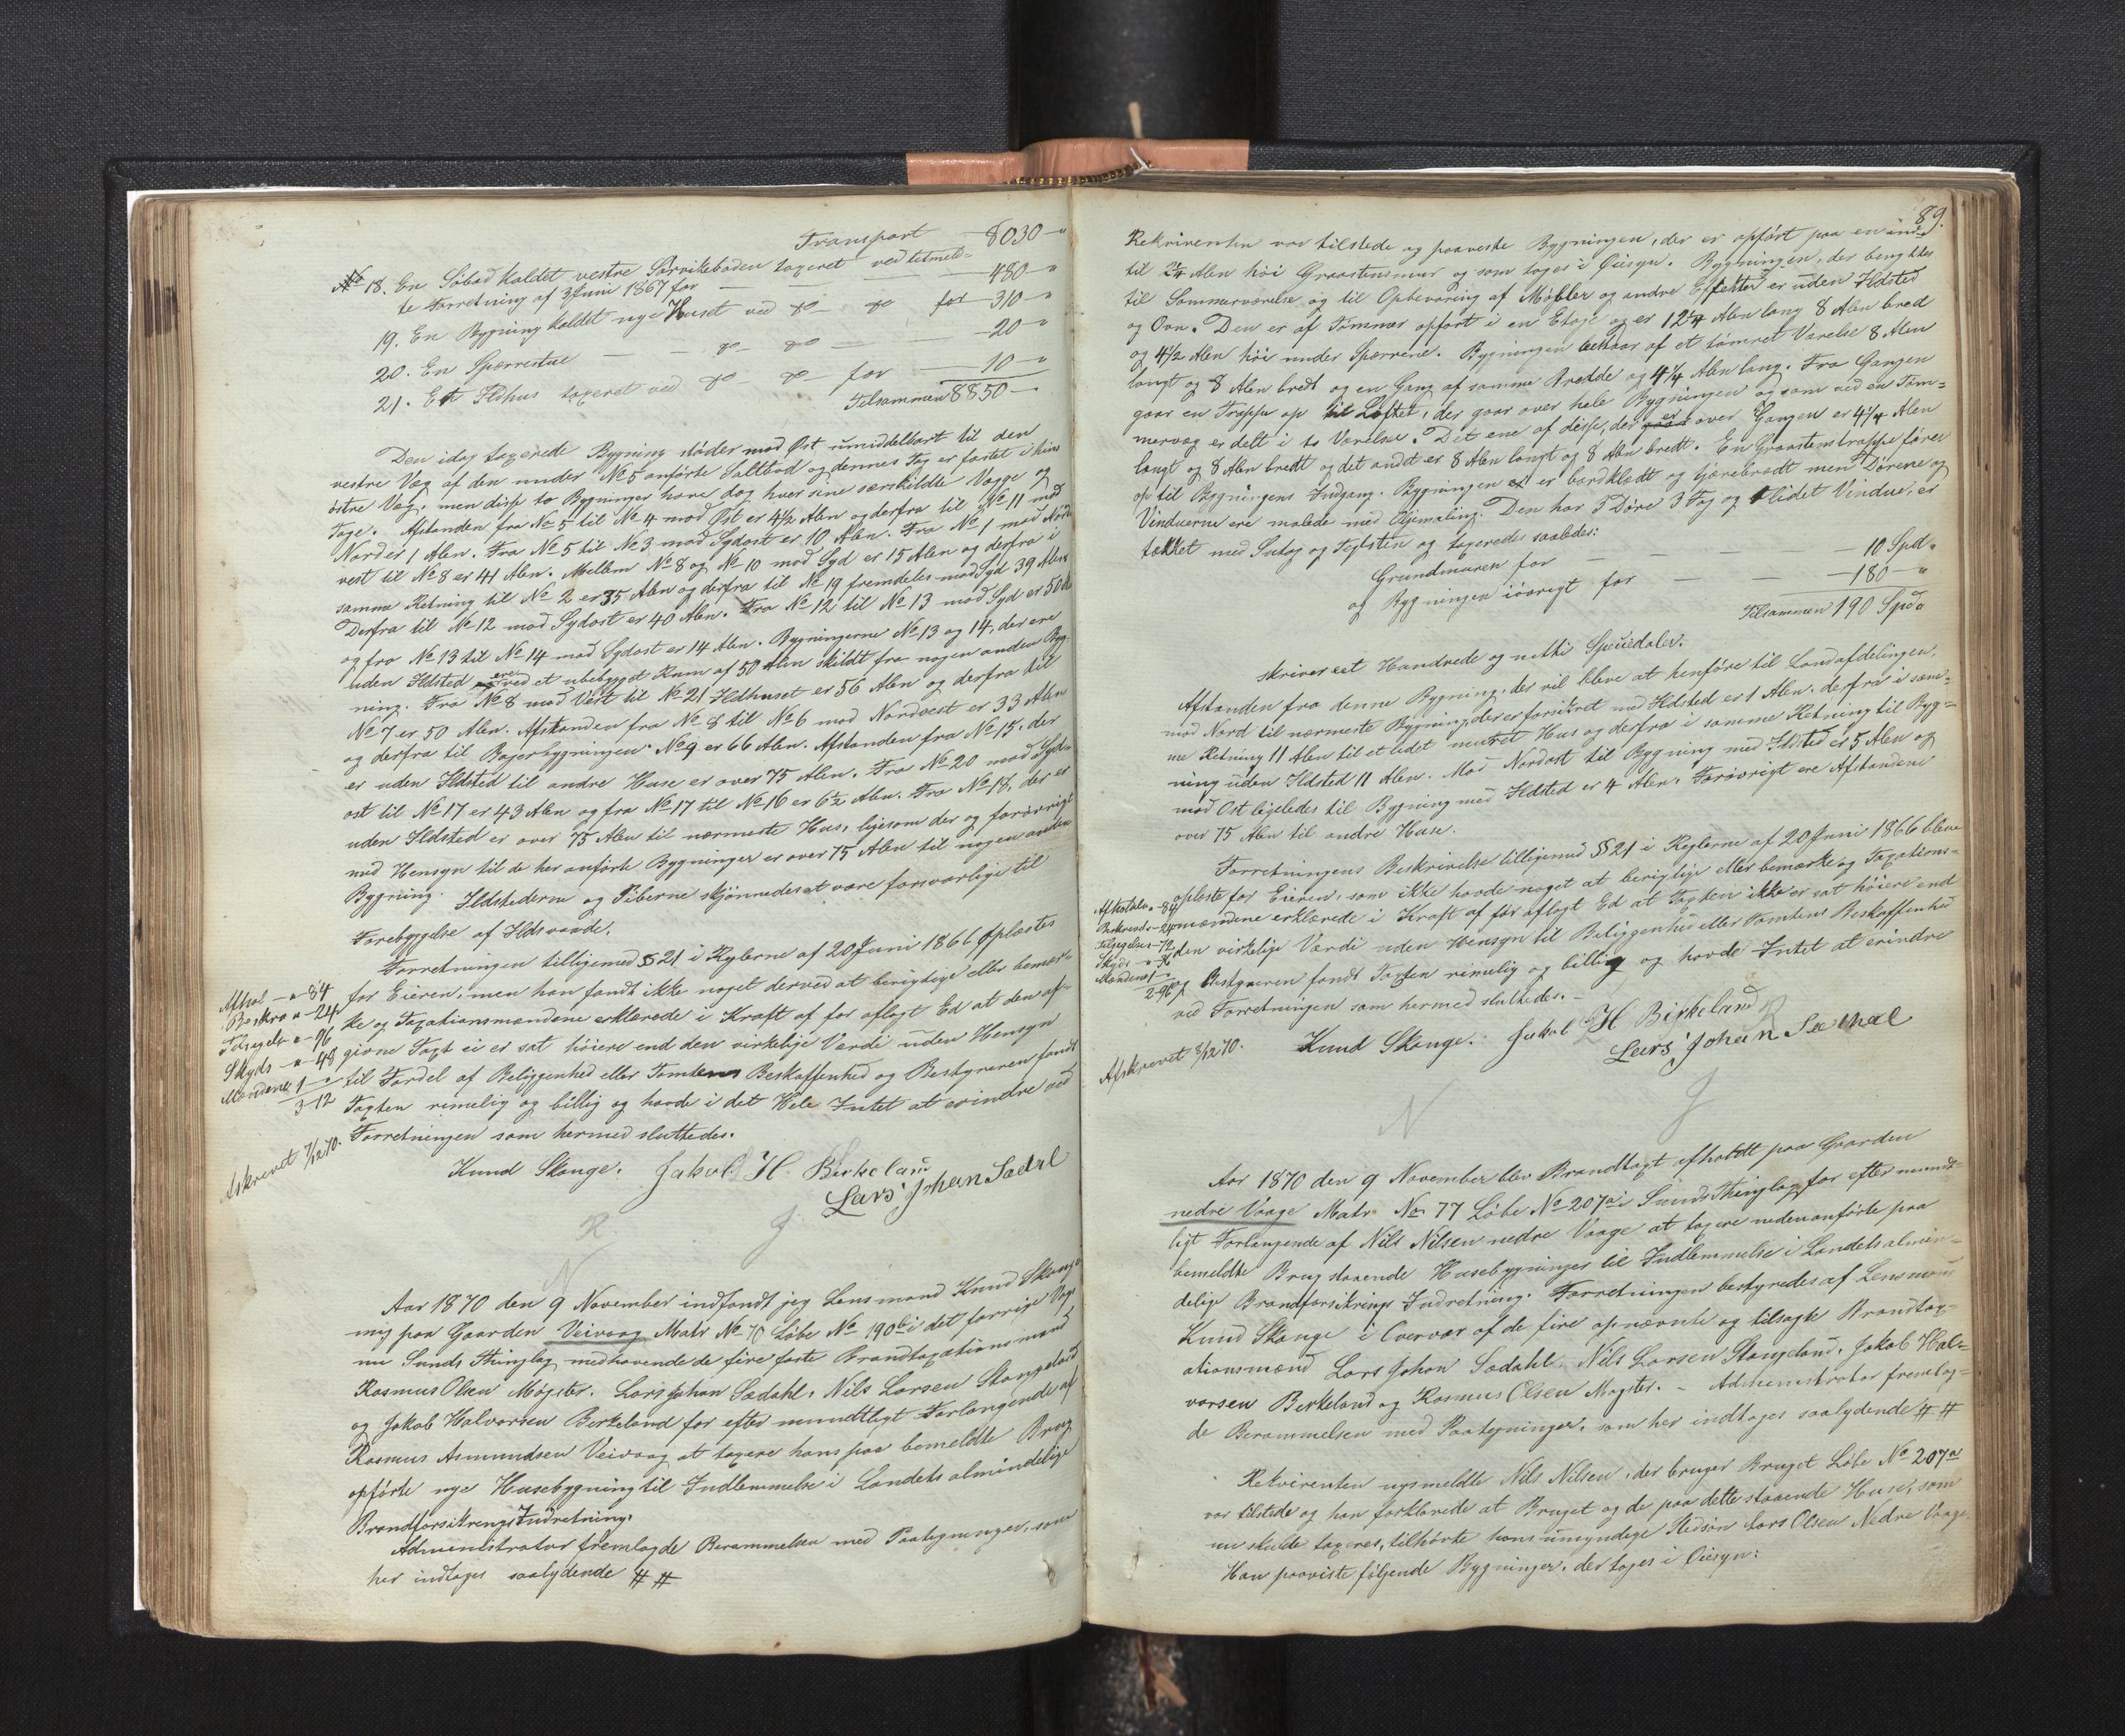 Transport 8030 "
No 18. En Søbod kaldet vestre Porvikeboden taxeret ved tilmeld=
te Forretning af 3 Juni 1867 for — 480 "
19. En Bygning kaldet nye Huset ved do do for 310 "
20. En Sperrestue — do do — 20 "
21. Et Ildhus taxeret ved do do for 10 "
Tilsammen 8850 —
Den idag taxerede Bygning støder mod Øst umiddelbart til den
vestre Væg af den under No 5 anførte Saltbod og dennes Tag er fæstet i hins
østre Væg, men disse to Bygninger have dog hver sine særskildte Vægge og
Tage. Afstanden fra No 5 til No 4 mod Øst er 4 1/2 Alen og derfra til No 11 mod
Nord er 1 Alen. Fra No 5 til No 3 mod Sydost er 10 Alen. Fra No 1 mod Nord
vest til No 8 er 41 Alen. Mellem No 8 og No 10 mod Syd er 15 Alen og derfra i
samme Retning til No 2 er 35 Alen og derfra til No 19 fremdeles mod Syd 39 Alen
Derfra til No 12 mod Sydost er 40 Alen. Fra No 12 til No 13 mod Syd er 50 Al
og fra No 13 til No 14 mod Sydost er 14 Alen. Bygningerne No 13 og 14, der ere
uden Ildsted ere ved et ubebygget Rum af 50 Alen skildt fra nogen anden Byg=
ning. Fra No 8 mod Vest til No 21 Ildhuset er 56 Alen og derfra til
No 7 er 50 Alen. Afstanden fra No 8 til No 6 mod Nordvest er 33 Alen
og derfra til Bagerbygningen No 9 er 66 Alen. Afstanden fra No 15, der
er uden Ildsted til andre Huse er over 75 Alen. Fra No 20 mod Syd=
ost til No 17 er 43 Alen og fra No 17 til No 16 er 6 1/2 Alen. Fra No 18, der er
uden Ildsted er over 75 Alen til nærmeste Hus, ligesom der og forøvrigt
med Hensyn til de her anførte Bygninger er over 75 Alen til nogen anden
Bygning. Ildstederne og Piberne skjønnedes at være forsvarlige til
Forebyggelse af Ildsvaade.
Forretningen tilligemed § 21 i Reglerne af 20 Juni 1866 oplæstes
for Eieren, men han fandt ikke noget derved at berigtige eller bemær=
ke og Taxationsmændene erklærede i Kraft af før aflagt Ed at den af=
givne Taxt ei er sat høiere end den virkelige Værdi uden Hensyn
til Fordel af Beliggenhed eller Tomtens Beskaffenhed og Bestyreren fandt
Taxten rimelig og billig og havde i det Hele Intet at erindre ved
Forretningen som hermed sluttedes.
Afhol — " 84
Beskre " - 24
Tilsigels " - 96
Skyds — " - 48
Mændenes 1 — "
3-12
Afskrevet 7/12 70.
Knud Skange. Jakob H. Birkeland
Lars Johan Sædal
R. J
N
Aar 1870 den 9 November indfandt jeg Lensmand Knud Skange
mig paa Gaarden Veivaag Matr No 70 Løbe No 190b i det forrige Vags
nu Sunds Thinglag medhavende de fire faste Brandtaxationsmænd
Rasmus Olsen Møgster, Lars Johan Sædahl, Nils Larsen Stangeland
og Jakob Halvorsen Birkeland for efter mundtligt Forlangende af
Rasmus Asmundsen Veivaag at taxere hans paa bemeldte Brug
opførte nye Husebygning til Indlemmelse i Landets almindelige
Brandforsikrings Indretning.
Administrator fremlagde Berammelsen med Paategninger, som
her indtages saalydende # #
89.
Rekvirenten var tilstede og paaviste Bygningen, der er opført paa en indtil
til 2 1/4 Alen høi Graastensmur og som toges i Øiesyn. Bygningen, der benyttes
til Sommerværelse og til Opbevaring af Møbler og andre Effekter er uden Ildsted
og Ovn. Den er af Tømmer opført i en Etage og er 12 1/4 Alen lang 8 Alen bred
og 4 1/2 Alen høi under Sperrene. Bygningen bestaar af et tømret Værelse 8 Alen
langt og 8 Alen bredt og en Gang af samme Bredde og 4 1/4 Alen lang. Fra Gangen
gaar en Trappe op til Loftet, der gaar over hele Bygningen og som ved en Tøm=
mervæg er delt i to Værelser. Det ene af disse, der er over Gangen er 4 1/4 Alen
langt og 8 Alen bredt og det andet er 8 Alen langt og 8 Alen bredt. En Graastenstrappe fører
op til Bygningens Indgang. Bygningen er bordklædt og tjærebrædt men Dørene og
Vinduerne ere malede med Oljemaling. Den har 3 Døre 3 Fag og 1 lidet Vindue, er
tækket med Sutag og Taglsten og taxeredes saaledes:
Grundmuren for — 10 Spd.
og Bygningen iøvrigt for — 180 "
Tilsammen 190 Spd.
skriver eet Hundrede og nitti Speciedaler.
Afstanden fra denne Bygning, der vil blive at henføre til Landafdelingen,
mod Nord til nærmeste Bygning, der er forsikret med Ildsted er 1 Alen. derfra i sam=
me Retning 11 Alen til et lidet muret Hus og derfra i samme Retning til Byg=
ning uden Ildsted 11 Alen. Mod Nordost til Bygning med Ildsted er 5 Alen og
mod Ost ligeledes til Bygning med Ildsted er 4 Alen. Forøvrigt ere Afstandene
over 75 Alen til andre Huse.
Forretningens Beskrivelse tilligemed § 21 i Reglerne af 20 Juni 1866 bleve
oplæste for Eieren, som ikke havde noget at berigtige eller bemærke og Taxations=
mændene erklærede i Kraft af før aflagt Ed at Taxten ikke er sat høiere end
den virkelige Værdi uden Hensyn til Beliggenhed eller Tomtens Beskaffenhed
og Bestyreren fandt Taxten rimelig og billig og havde Intet at erindre
ved Forretningen som hermed sluttedes. —
Afholdelse " - 84
Beskrivels " - 24
Tilsigelse " - 72
Skyds — " - 36
Mændene 1 "
2-96
Afskrevet 8/12 70.
Knud Skange. Jakob H Birkeland
Lars Johan Sædal
R
N J
Aar 1870 den 9 November blev Brandtaxt afholdt paa Gaarden
nedre Vaage Matr. No 77 Løbe No 207a i Sunds Thinglag for efter mundt=
ligt Forlangende af Nils Nilsen nedre Vaage at taxere nedenanførte paa
bemeldte Brug staaende Husebygninger til Indlemmelse i Landets almin=
delige Brandforsikrings Indretning. Forretningen bestyredes af Lensmand
Knud Skange i Overvær af de fire opnævnte og tilsagte Brandtax=
ationsmænd Lars Johan Sædahl, Nils Larsen Stangeland, Jakob Hal=
vorsen Birkeland og Rasmus Olsen Møgster. — Administrator fremlag=
de Berammelsen med Paategninger, som her indtages saalydende # #
Rekvirenten nysmeldte Nils Nilsen, der bruger Bruget Løbe No 207a
var tilstede og han forklarede at Bruget og de paa dette staaende Huse, som
nu skulde taxeres, tilhørte hans umyndige Stedsøn Lars Olsen Nedre Vaage.
Han paaviste følgende Bygninger, der toges i Øiesyn: